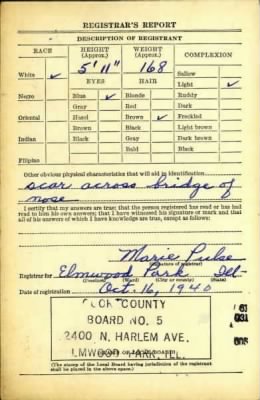 REGISTRAR'S REPORT
DESCRIPTION OF REGISTRANT
RACE HEIGHT (Approx.) WEIGHT (Approx.) COMPLEXION
5' 11" 168 Sallow
White ✓ EYES HAIR Light ✓
Negro Blue ✓ Blonde Ruddy
Gray Red Dark
Oriental Hazel Brown ✓ Freckled
Brown Black Light brown
Indian Black Gray Dark brown
Bald Black
Filipino
Other obvious physical characteristics that will aid in identification
scar across bridge of
nose
I certify that my answers are true; that the person registered has read or has had
read to him his own answers; that I have witnessed his signature or mark and that
all of his answers of which I have knowledge are true, except as follows:
Marie Pulse
(Signature of registrar)
Registrar for Elmwood Park Ill.
(Precinct) (Ward) (City or county) (State)
Date of registration Oct. 16, 1940
COUNTY
BOARD NO. 5
2400 N. HARLEM AVE.
LMWOOD PARK, ILL.
(The stamp of the Local Board having jurisdiction of the registrant
shall be placed in the above space.)